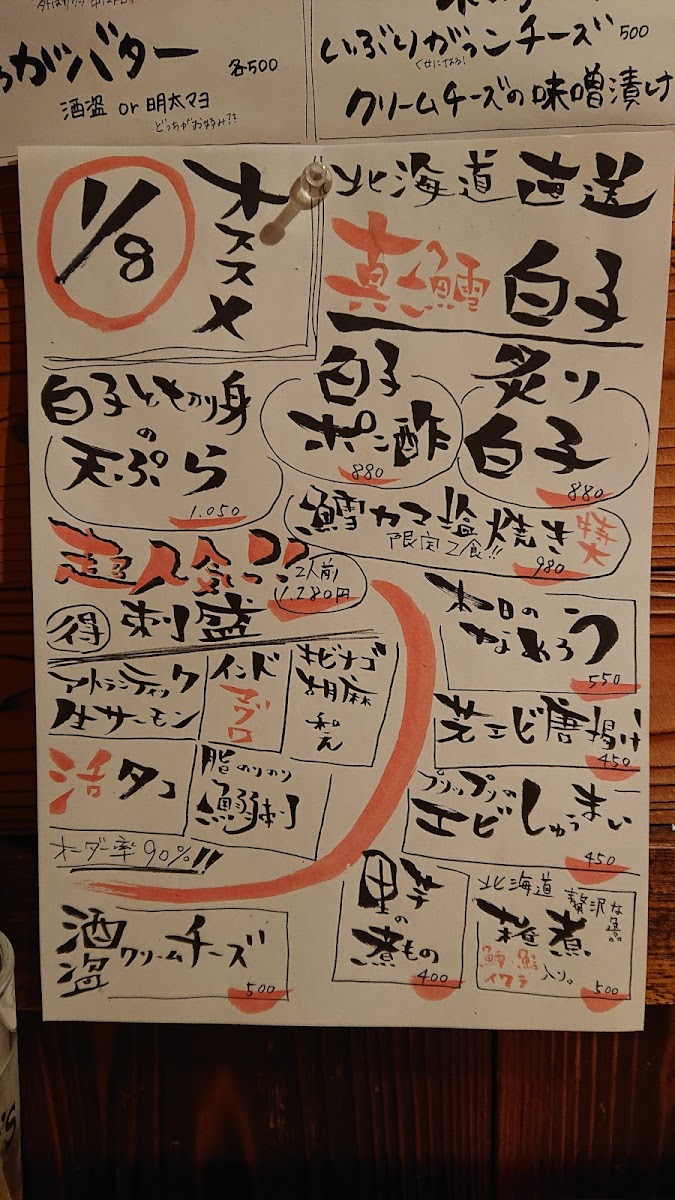 がバター
各500
酒盗 or 明太マヨ
どっちがお好み??
いぶりがっこチーズ 500
くせになる!
クリームチーズの味噌漬け
1/8
オススメ
北海道直送
真鱈白子
白子ともかり身
の
天ぷら
1.050
白子
ポン酢
880
炙り
白子
880
鱈カマ塩焼き 特大
限定2食!!
980
超人気っ!!
2人前
1,280円
得 刺盛
アトランティック
生サーモン
インド
マグロ
キビナゴ
胡麻
和え
活タコ
脂のりのり
鰯刺
オーダー率90%!!
本日の
なめろう
550
芝エビ唐揚げ
450
プリップリの
エビしゅうまい
450
酒盗クリームチーズ
500
里芋
の
煮もの
400
北海道
贅沢な逸品
煮
鱈、鮭
イクラ
入り。
500